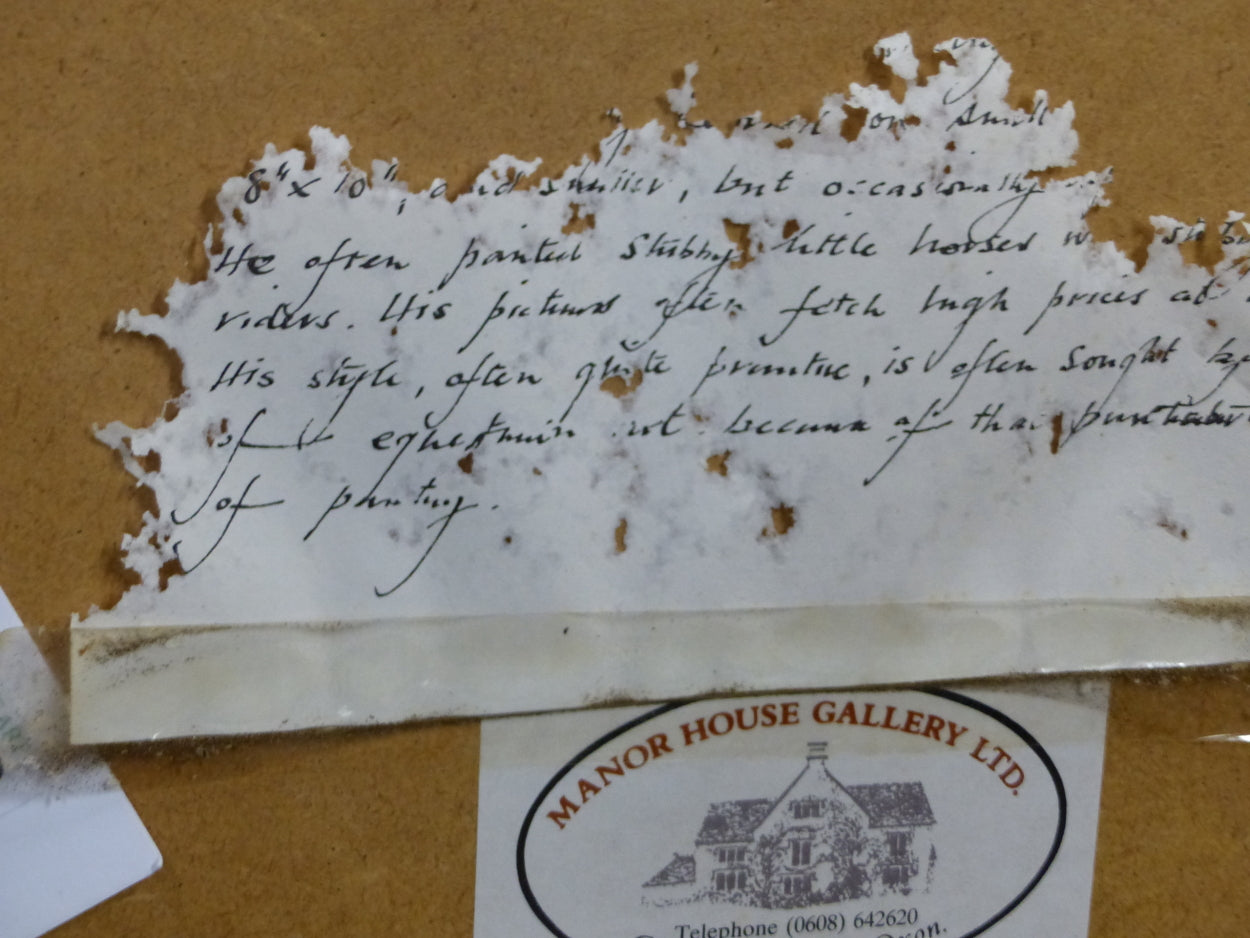 on small
8" x 10", and smaller, but occasionally
He often painted stubby little horses
riders. His pictures often fetch high prices at
His style, often quite primitive, is often sought by
of equestrian art because of their
of painting.
MANOR HOUSE GALLERY LTD.
Telephone (0608) 642620
Oxon.